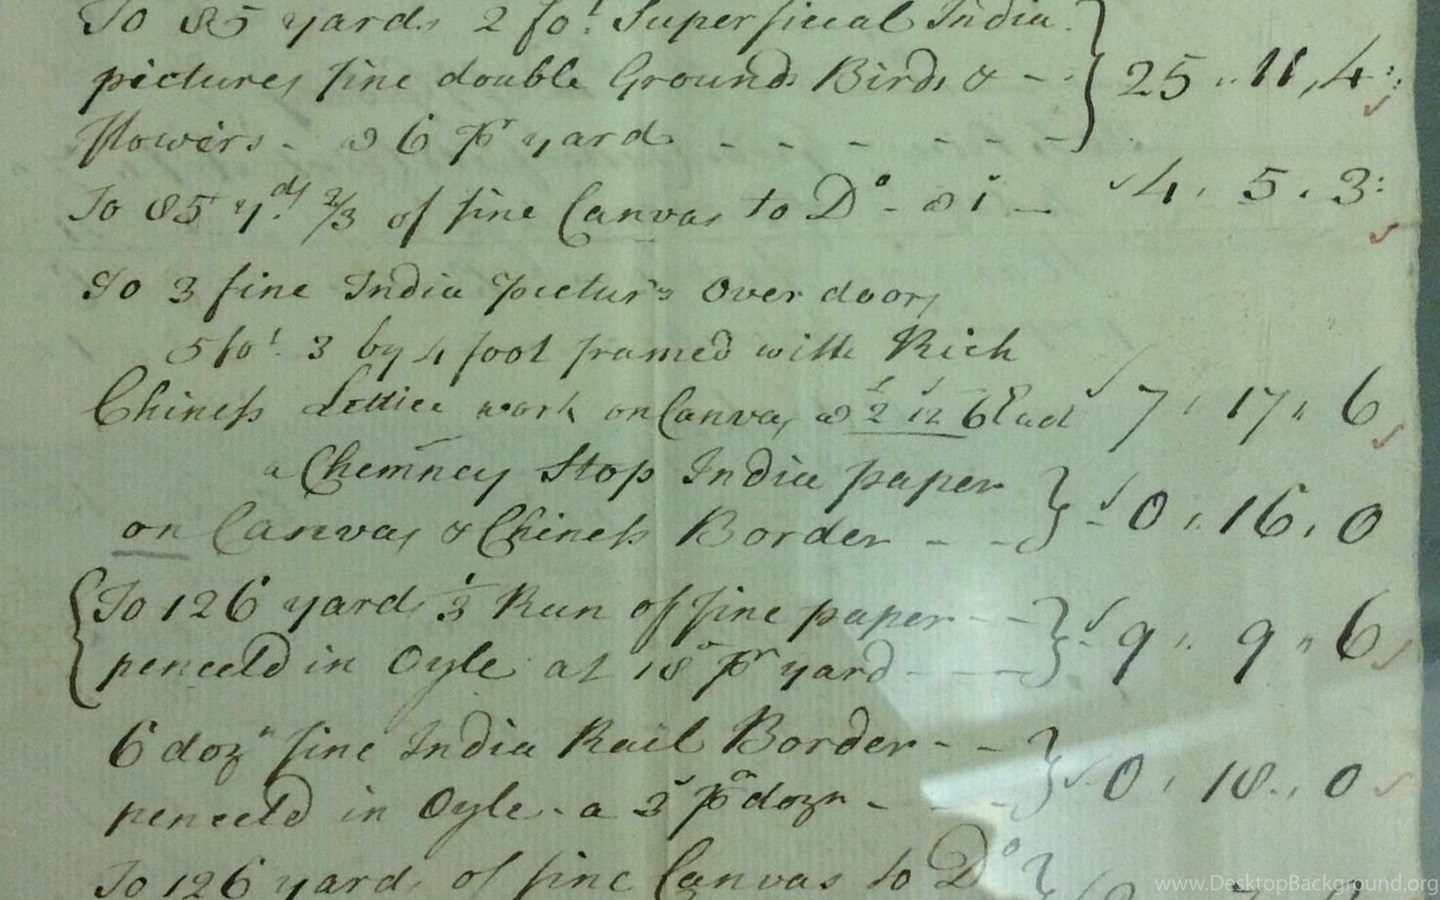 To 85 yards 2 fot Superficial India
pictures fine double Grounds Birds & - 25 11 4
flowers - a 6 pr yard - - - - - -
To 85 yds 2/3 of fine Canvas to Do - a 1s - 4 5 3
To 3 fine India picturs Over doors
5 fot 3 by 4 foot framed with Rich
Chiness Lettice work on Canvas a £2 12 6 Each 7 17 6
a Chemney Stop India paper
on Canvas & Chiness Border - - 0 16 0
To 126 yards 1/3 Run of fine paper - -
penceld in Oyle at 18d pr yard - - - 9 9 6
6 dozn fine India Rail Border - -
penceld in Oyle - a 3s pr dozn - - - 0 18 0
To 126 yards of fine Canvas to Do
www.DesktopBackground.org